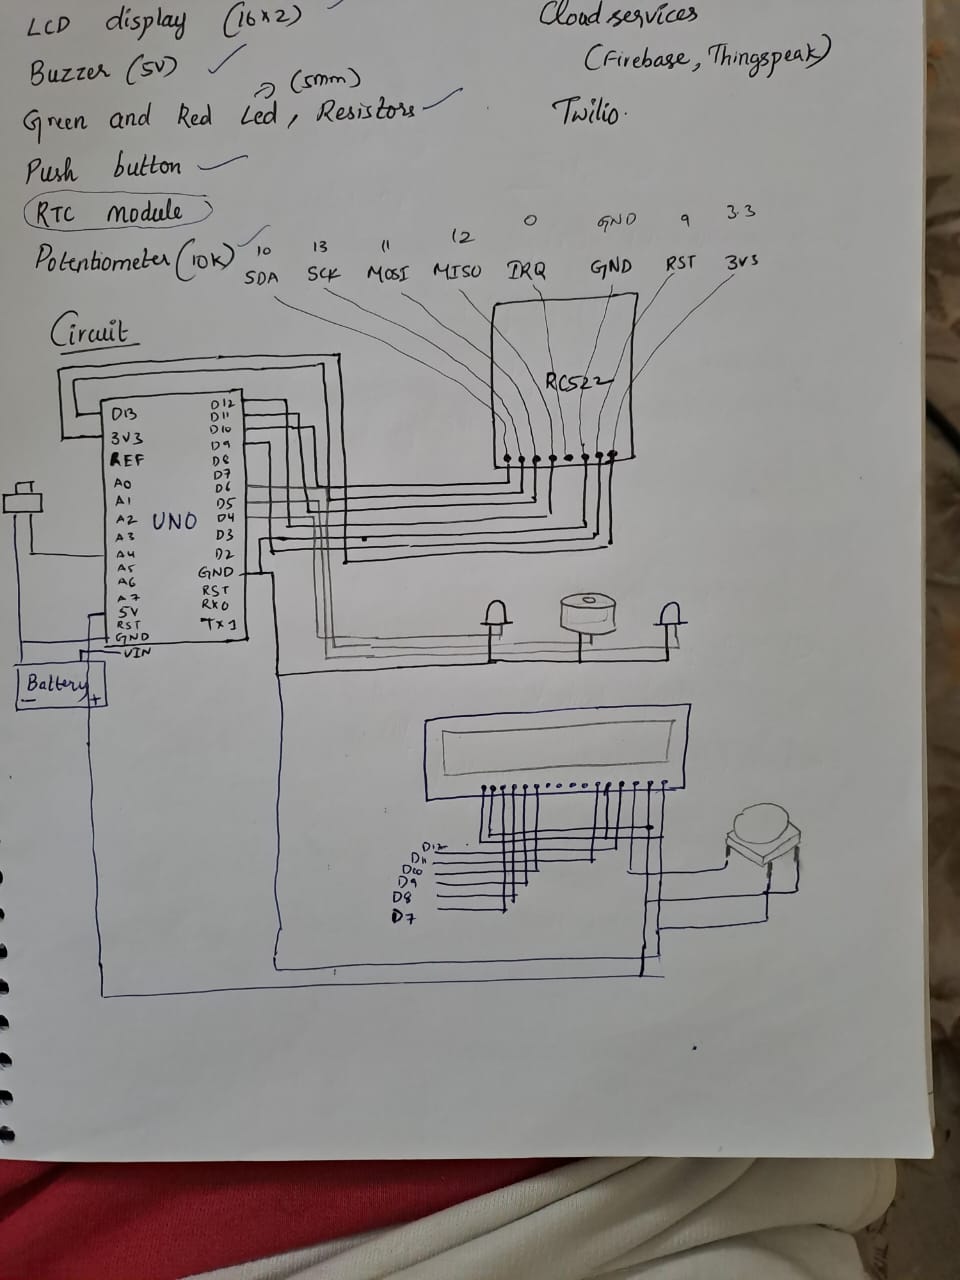 LCD display (16x2)
Buzzer (5V)
(5mm)
Green and Red Led, Resistors
Push button
RTC module
Potentiometer (10K)
Cloud services
(Firebase, Thingspeak)
Twilio.
10 13 11 12 0 GND 9 3.3
SDA SCK MOSI MISO IRQ GND RST 3V3
Circuit
RC522
D13
3V3
REF
A0
A1
A2
A3
A4
A5
A6
A7
5V
RST
GND
VIN
UNO
D12
D11
D10
D9
D8
D7
D6
D5
D4
D3
D2
GND
RST
RX0
TX1
Battery
- +
D12
D11
D10
D9
D8
D7